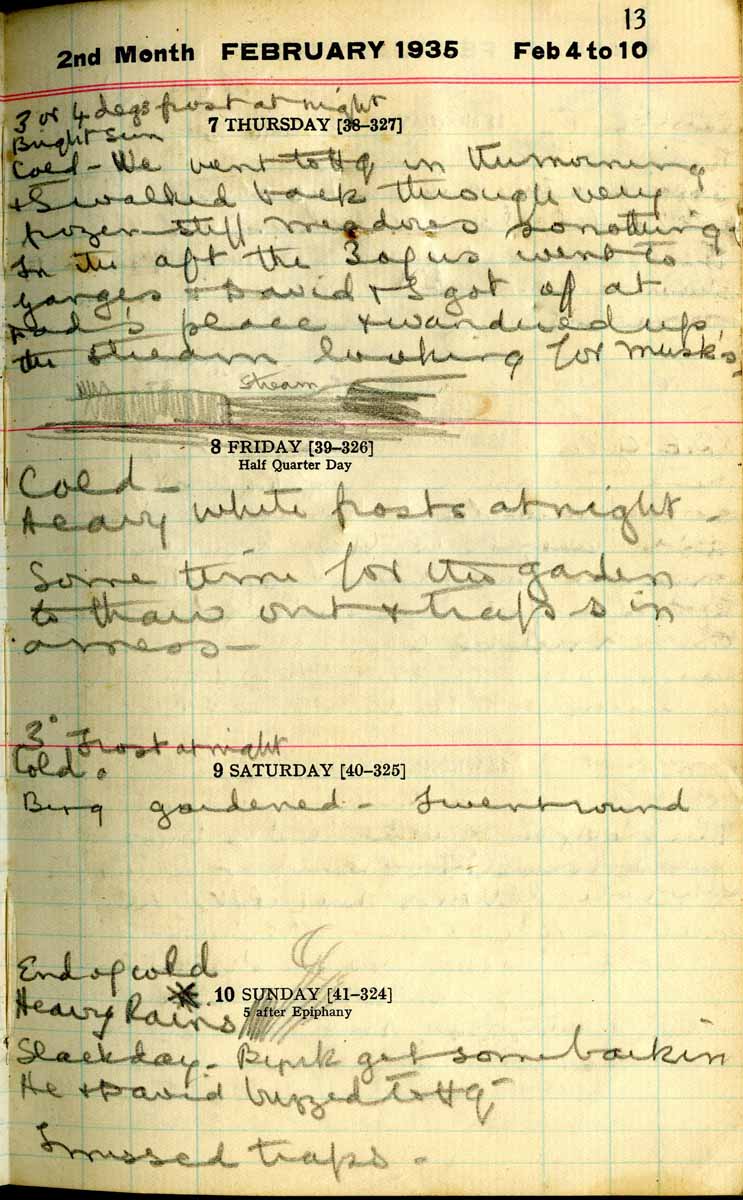 13
2nd Month FEBRUARY 1935 Feb 4 to 10
3 or 4 degs frost at night
Bright Sun
7 THURSDAY [38–327]
Cold - We went to Hq in the morning
+ I walked back through very
frozen stiff meadows
In the aft the 3 of us went to
+ David + I got off at
place + wandered up
the stream looking for musks
Stream
8 FRIDAY [39–326]
Half Quarter Day
Cold -
Heavy white frosts at night -
Some time for the garden
to thaw out + traps in
a mess -
3° Frost at night
Cold.
9 SATURDAY [40–325]
gardened - I went round
End of cold
Heavy Rains
10 SUNDAY [41–324]
5 after Epiphany
Slack day - get some back in
He + David buzzed to Hq -
I missed traps -